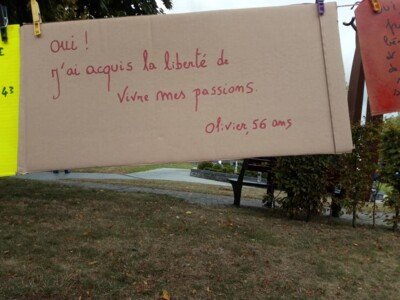 oui !
j'ai acquis la liberté de
vivre mes passions.
Olivier, 56 ans
43